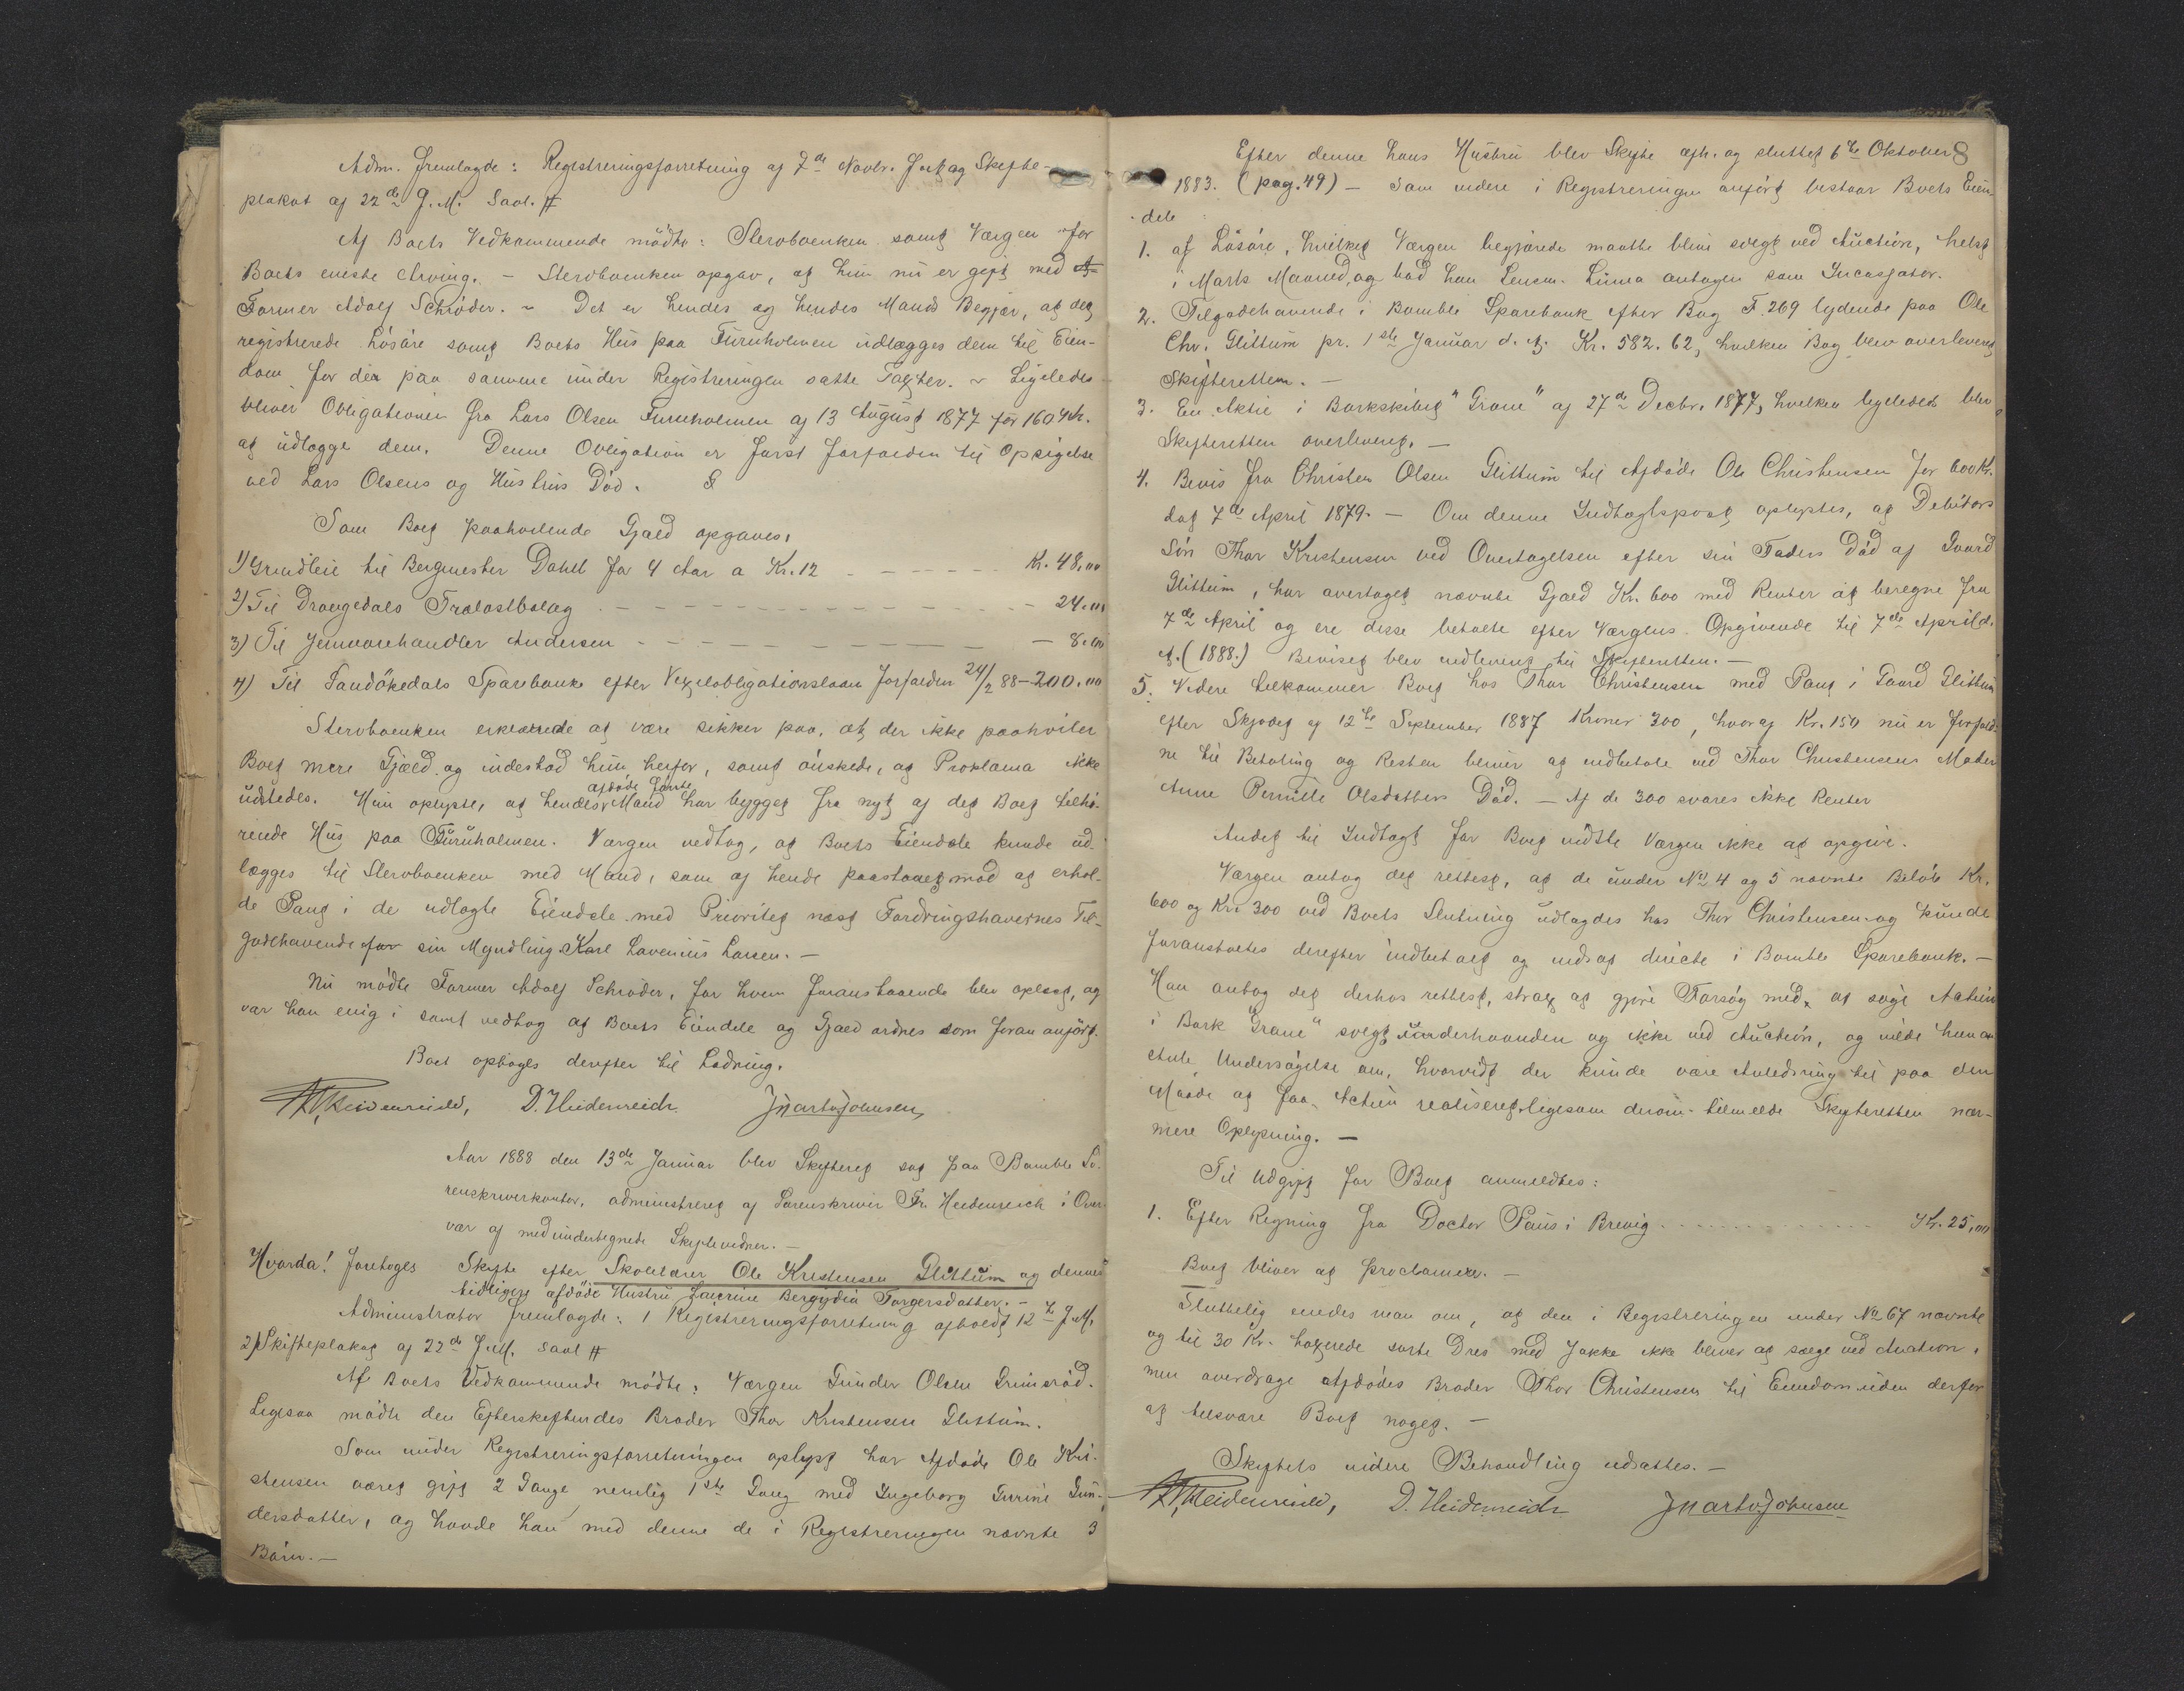 Adm. fremlagde: Registreringsforretning af 7de Novbr. f. A. og Skifte-
plakat af 22de f. M. Saal. #
Af Boets Vedkommende mødte: Stervboenken samt Værgen for
Boets eneste Arving. – Stervboenken opgav, at hun nu er gift med
Former Adolf Schrøder. – Det er hendes og hendes Mands Begjær, at det
registrerede Løsøre samt Boets Hus paa Furuholmen udlægges dem til Eien-
dom for den paa samme under Registreringen satte Taxter. – Ligeledes
bliver Obligationen fra Lars Olsen Furuholmen af 13 August 1877 for 160 Kr.
at udlægge dem. Denne Obligation er først forfalden til Opsigelse
ved Lars Olsens og Hustrus Død.
Som Boet paahvilende Gjæld opgaves:
1) Grundleie til Bergmester Dahll for 4 Aar a Kr. 12 - - - - - Kr. 48,00
2) Til Drangedals Trælastbolag - - - - - 24.00
3) Til Jernvarehandler Andersen - - - - - 8.00
4) Til Sandøkedals Sparebank efter Vexelobligationslaan forfalden 24/2 88 – 200.00
Stervboenken erklærede at være sikker paa, at der ikke paahviler
Boet mere Gjæld og indestod hun herfor, samt ønskede, at Proklama ikke
udstedes. Hun oplyste, at hendes afdøde første Mand har bygget fra nyt af det Boet tilhø-
rende Hus paa Furuholmen. Værgen vedtog, at Boets Eiendele kunde ud-
lægges til Stervboenken med Mand, som af hende paastaaet mod at erhol-
de Pant i de udlagte Eiendele med Prioritet næst Fordringshavernes Til-
godehavende for sin Myndling Karl Lavenius Larsen. –
Nu mødte Former Adolf Schrøder, for hvem foranstaaende blev oplæst, og
var han enig i samt vedtog at Boets Eiendele og Gjæld ordnes som foran anført.
Boet optoges derefter til Lodning.
Fr. Heidenreich, D. Heidenreich J. Martv. Johnsen,
Aar 1888 den 13de Januar blev Skifteret sat paa Bamble So-
renskriverkontor, administreret af Sorenskriver Fr. Heidenreich i Over-
vær af medundertegnede Skiftevidner. –
Hvorda! Foretoges Skifte efter Skolelærer Ole Kristensen Glittum og dennes
tidligere afdøde Hustru Laurine Bergydia Torgersdatter. –
Administrator fremlagde: 1 Registreringsforretning afholdt 12te f. M.
2) Skifteplakat af 22de f. M. saal #
Af Boets Vedkommende mødte: Værgen Gunder Olsen Grimsrød.
Ligesaa mødte den Efterskiftendes Broder Thor Kristensen Glittum.
Som under Registreringsforretningen oplyst har Afdøde Ole Kri-
stensen været gift 2 Gange nemlig 1ste Gang med Ingeborg Gurine Gun-
dersdatter, og havde han med denne de i Registreringen nævnte 3
Børn. –
8
Efter denne hans Hustru blev Skifte afh. og sluttet 6te Oktober
1883. (pag. 49) – Som videre i Registreringen anført bestaar Boets Eien-
dele
1. af Løsøre, hvilket Værgen begjærede maatte blive solgt ved Auction, helst
i Marts Maaned, og bad han Lensm. Linna antagen som Incassator.
2. Tilgodehavende i Bamble Sparebank efter Bog F. 269 lydende paa Ole
Chr. Glittum pr. 1ste Januar d. A. Kr. 582.62, hvilken Bog blev overleveret
Skifteretten. –
3. En Aktie i Barkskibet "Grane" af 27de Decbr. 1877, hvilken ligeledes blev
Skifteretten overleveret. –
4. Bevis fra Christen Olsen Glittum til Afdøde Ole Christensen for 600 Kr.
dat 7de April 1879. – Om denne Indtægtspost oplystes, at Debitors
Søn Thor Kristensen ved Overtagelsen efter sin Faders Død af Gaard
Glittum, har overtaget nævnte Gjæld Kr. 600 med Renter at beregne fra
7de April og ere disse betalte efter Værgens Opgivende til 7de April d.
A. (1888.) Beviset blev udleveret til Skifteretten. –
5. Videre tilkommer Boet hos Thor Christensen med Pant i Gaard Glittum
efter Skjødet af 12te September 1887 Kroner 300, hvoraf Kr. 150 nu er forfald-
ne til Betaling og Resten bliver at udbetale ved Thor Christensens Moder
Anne Pernille Olsdatters Død. – Af de 300 svares ikke Renter
Andet til Indtægt for Boet vidste Værgen ikke at opgive.
Værgen antog det rettest, at de under No 4 og 5 nævnte Beløb Kr.
600 og Kr. 300 ved Boets Slutning udlagdes hos Thor Christensen og kunde
foranstaltes derefter indbetalt og indsat directe i Bamble Sparebank. –
Han antog det derhos rettest, strax at gjøre Forsøg med at søge Actien
i Bark "Grane" solgt underhaanden og ikke ved Auction, og vilde han an-
stille Undersøgelse om, hvorvidt der kunde være Anledning til paa den
Maade at faa Actien realiseret, ligesom derom tilmelde Skifteretten nær-
mere Oplysning. –
Til Udgift for Boet anmeldtes:
1. Efter Regning fra Doctor Paus i Brevig - - - - - Kr. 25,00
Boet bliver at proclamere. –
Sluttelig enedes man om, at den i Registreringen under No 67 nævnte
og til 30 Kr. taxerede sorte Dres med Jakke ikke bliver at sælge ved Auction,
men overdrage Afdødes Broder Thor Christensen til Eiendom uden derfor
at tilsvare Boet noget. –
Skiftets videre Behandling udsattes. –
Fr. Heidenreich, D. Heidenreich J. Martv. Johnsen